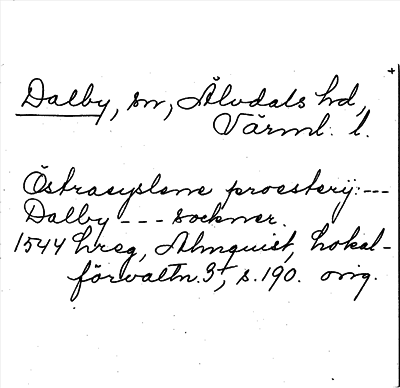 Dalby, sn, Älvdals hd,
Värml. l.
Östrasyslene proesterij: ---
Dalby --- sockner.
1544 hreg, Almquist, Lokal-
förvaltn. 3, s. 190. orig.